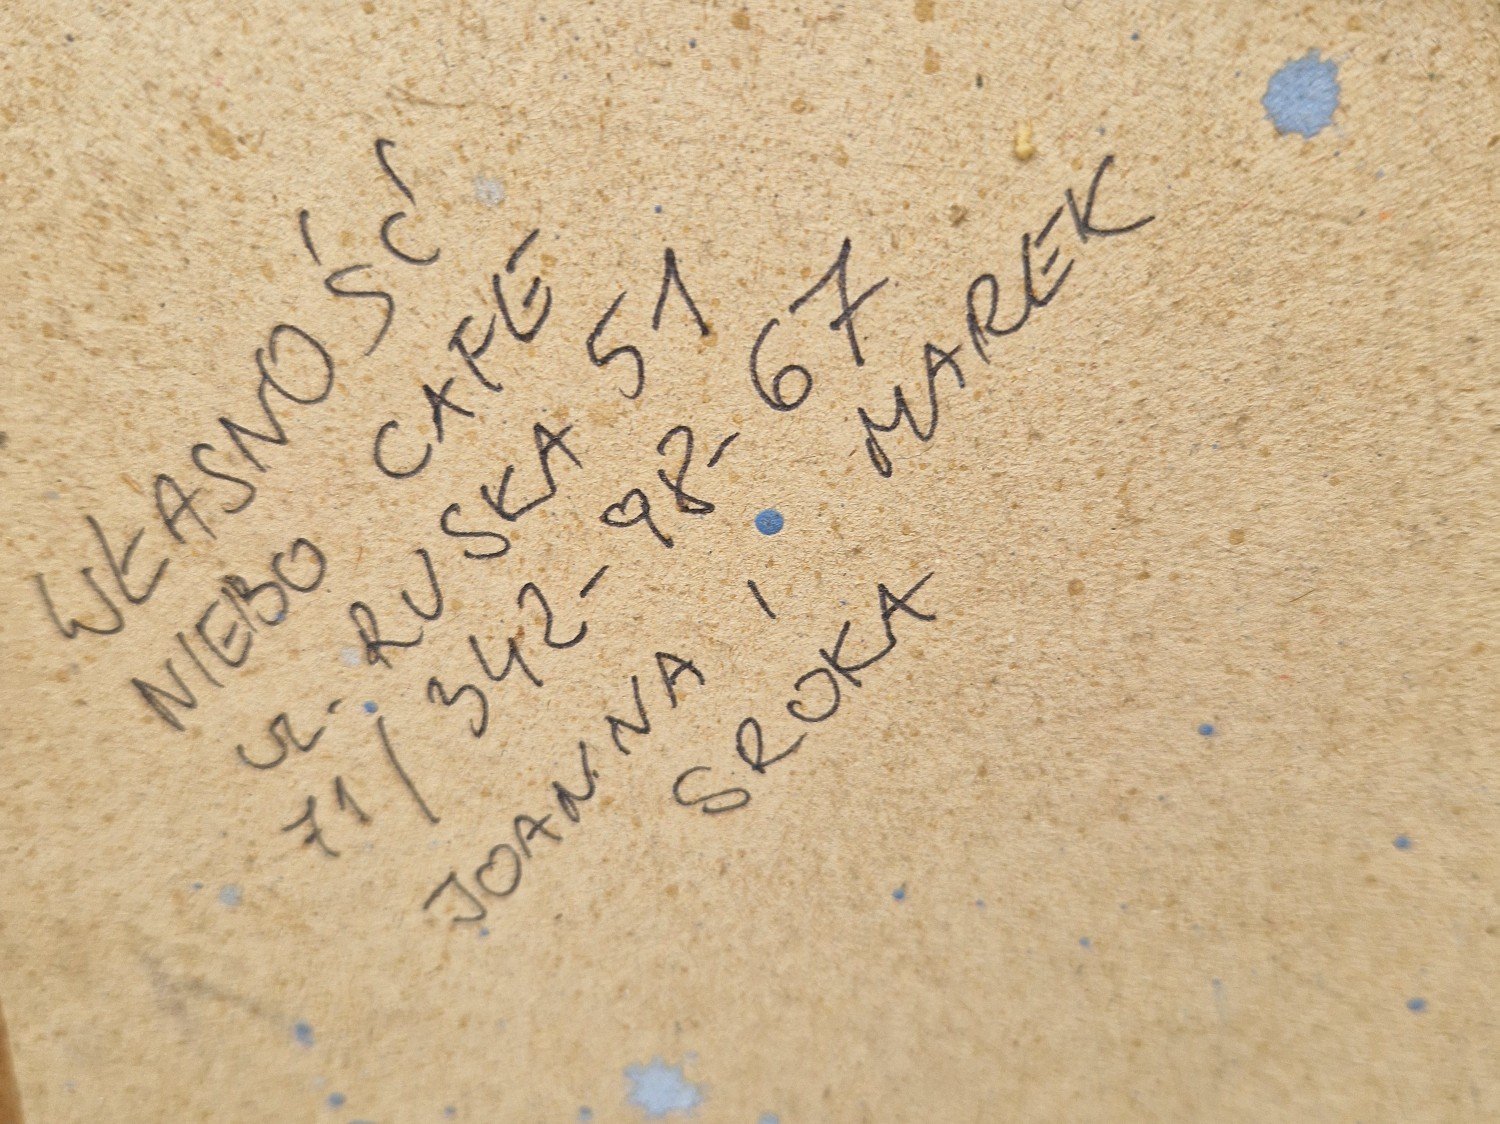 WŁASNOŚĆ
NIEBO CAFÉ
UL. RUSKA 51
71/342-98-67
JOANNA I MAREK
SROKA